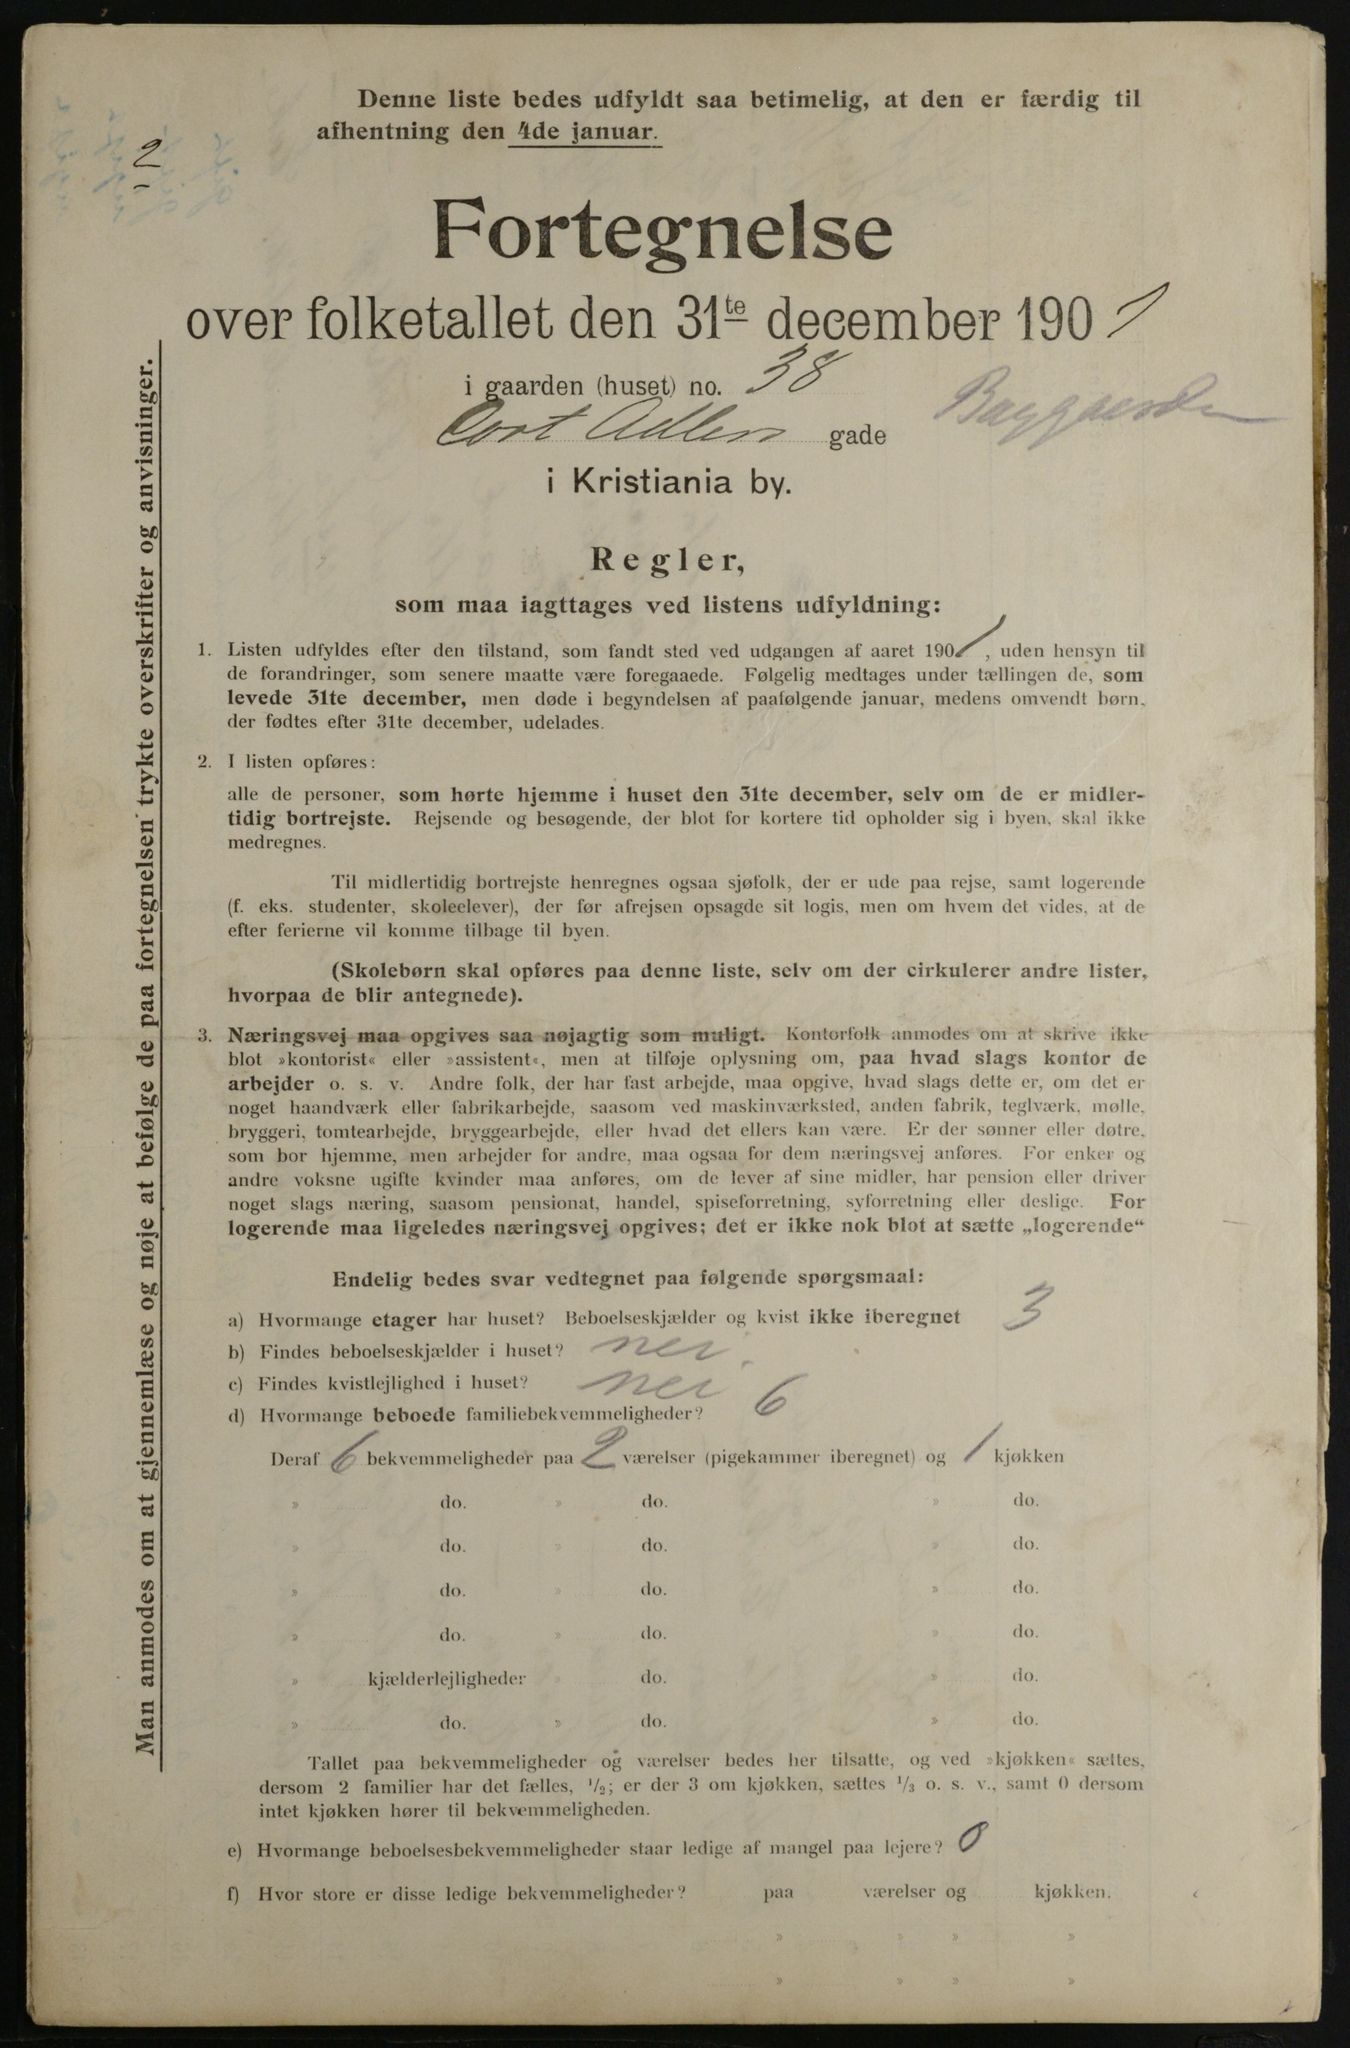 Denne liste bedes udfyldt saa betimelig, at den er færdig til
afhentning den 4de januar.
2
Fortegnelse
over folketallet den 31te december 1901
i gaarden (huset) no. 38
Cort Adlers gade
Baggaarden
i Kristiania by.
Regler,
som maa iagttages ved listens udfyldning:
1. Listen udfyldes efter den tilstand, som fandt sted ved udgangen af aaret 1901, uden hensyn til
de forandringer, som senere maatte være foregaaede. Følgelig medtages under tællingen de, som
levede 31te december, men døde i begyndelsen af paafølgende januar, medens omvendt børn,
der fødtes efter 31te december, udelades.
2. I listen opføres:
alle de personer, som hørte hjemme i huset den 31te december, selv om de er midler-
tidig bortrejste. Rejsende og besøgende, der blot for kortere tid opholder sig i byen, skal ikke
medregnes.
Til midlertidig bortrejste henregnes ogsaa sjøfolk, der er ude paa rejse, samt logerende
(f. eks. studenter, skoleelever), der før afrejsen opsagde sit logis, men om hvem det vides, at de
efter ferierne vil komme tilbage til byen.
(Skolebørn skal opføres paa denne liste, selv om der cirkulerer andre lister,
hvorpaa de blir antegnede).
3. Næringsvej maa opgives saa nøjagtig som muligt. Kontorfolk anmodes om at skrive ikke
blot »kontorist« eller »assistent«, men at tilføje oplysning om, paa hvad slags kontor de
arbejder o. s. v. Andre folk, der har fast arbejde, maa opgive, hvad slags dette er, om det er
noget haandværk eller fabrikarbejde, saasom ved maskinværksted, anden fabrik, teglværk, mølle,
bryggeri, tomtearbejde, bryggearbejde, eller hvad det ellers kan være. Er der sønner eller døtre,
som bor hjemme, men arbejder for andre, maa ogsaa for dem næringsvej anføres. For enker og
andre voksne ugifte kvinder maa anføres, om de lever af sine midler, har pension eller driver
noget slags næring, saasom pensionat, handel, spiseforretning, syforretning eller deslige. For
logerende maa ligeledes næringsvej opgives; det er ikke nok blot at sætte „logerende“
Endelig bedes svar vedtegnet paa følgende spørgsmaal:
a) Hvormange etager har huset? Beboelseskjælder og kvist ikke iberegnet 3
b) Findes beboelseskjælder i huset? nei.
c) Findes kvistlejlighed i huset? nei
d) Hvormange beboede familiebekvemmeligheder? 6
Deraf 6 bekvemmeligheder paa 2 værelser (pigekammer iberegnet) og 1 kjøkken
» do. » do. » do.
» do. » do. » do.
» do. » do. » do.
» do. » do. » do.
» kjælderlejligheder » do. » do.
» do. » do. » do.
Tallet paa bekvemmeligheder og værelser bedes her tilsatte, og ved »kjøkken« sættes,
dersom 2 familier har det fælles, 1/2; er der 3 om kjøkken, sættes 1/3 o. s. v., samt 0 dersom
intet kjøkken hører til bekvemmeligheden.
e) Hvormange beboelsesbekvemmeligheder staar ledige af mangel paa lejere? 0
f) Hvor store er disse ledige bekvemmeligheder? paa værelser og kjøkken.
» » » »
» » » »
Man anmodes om at gjennemlæse og nøje at befølge de paa fortegnelsen trykte overskrifter og anvisninger.